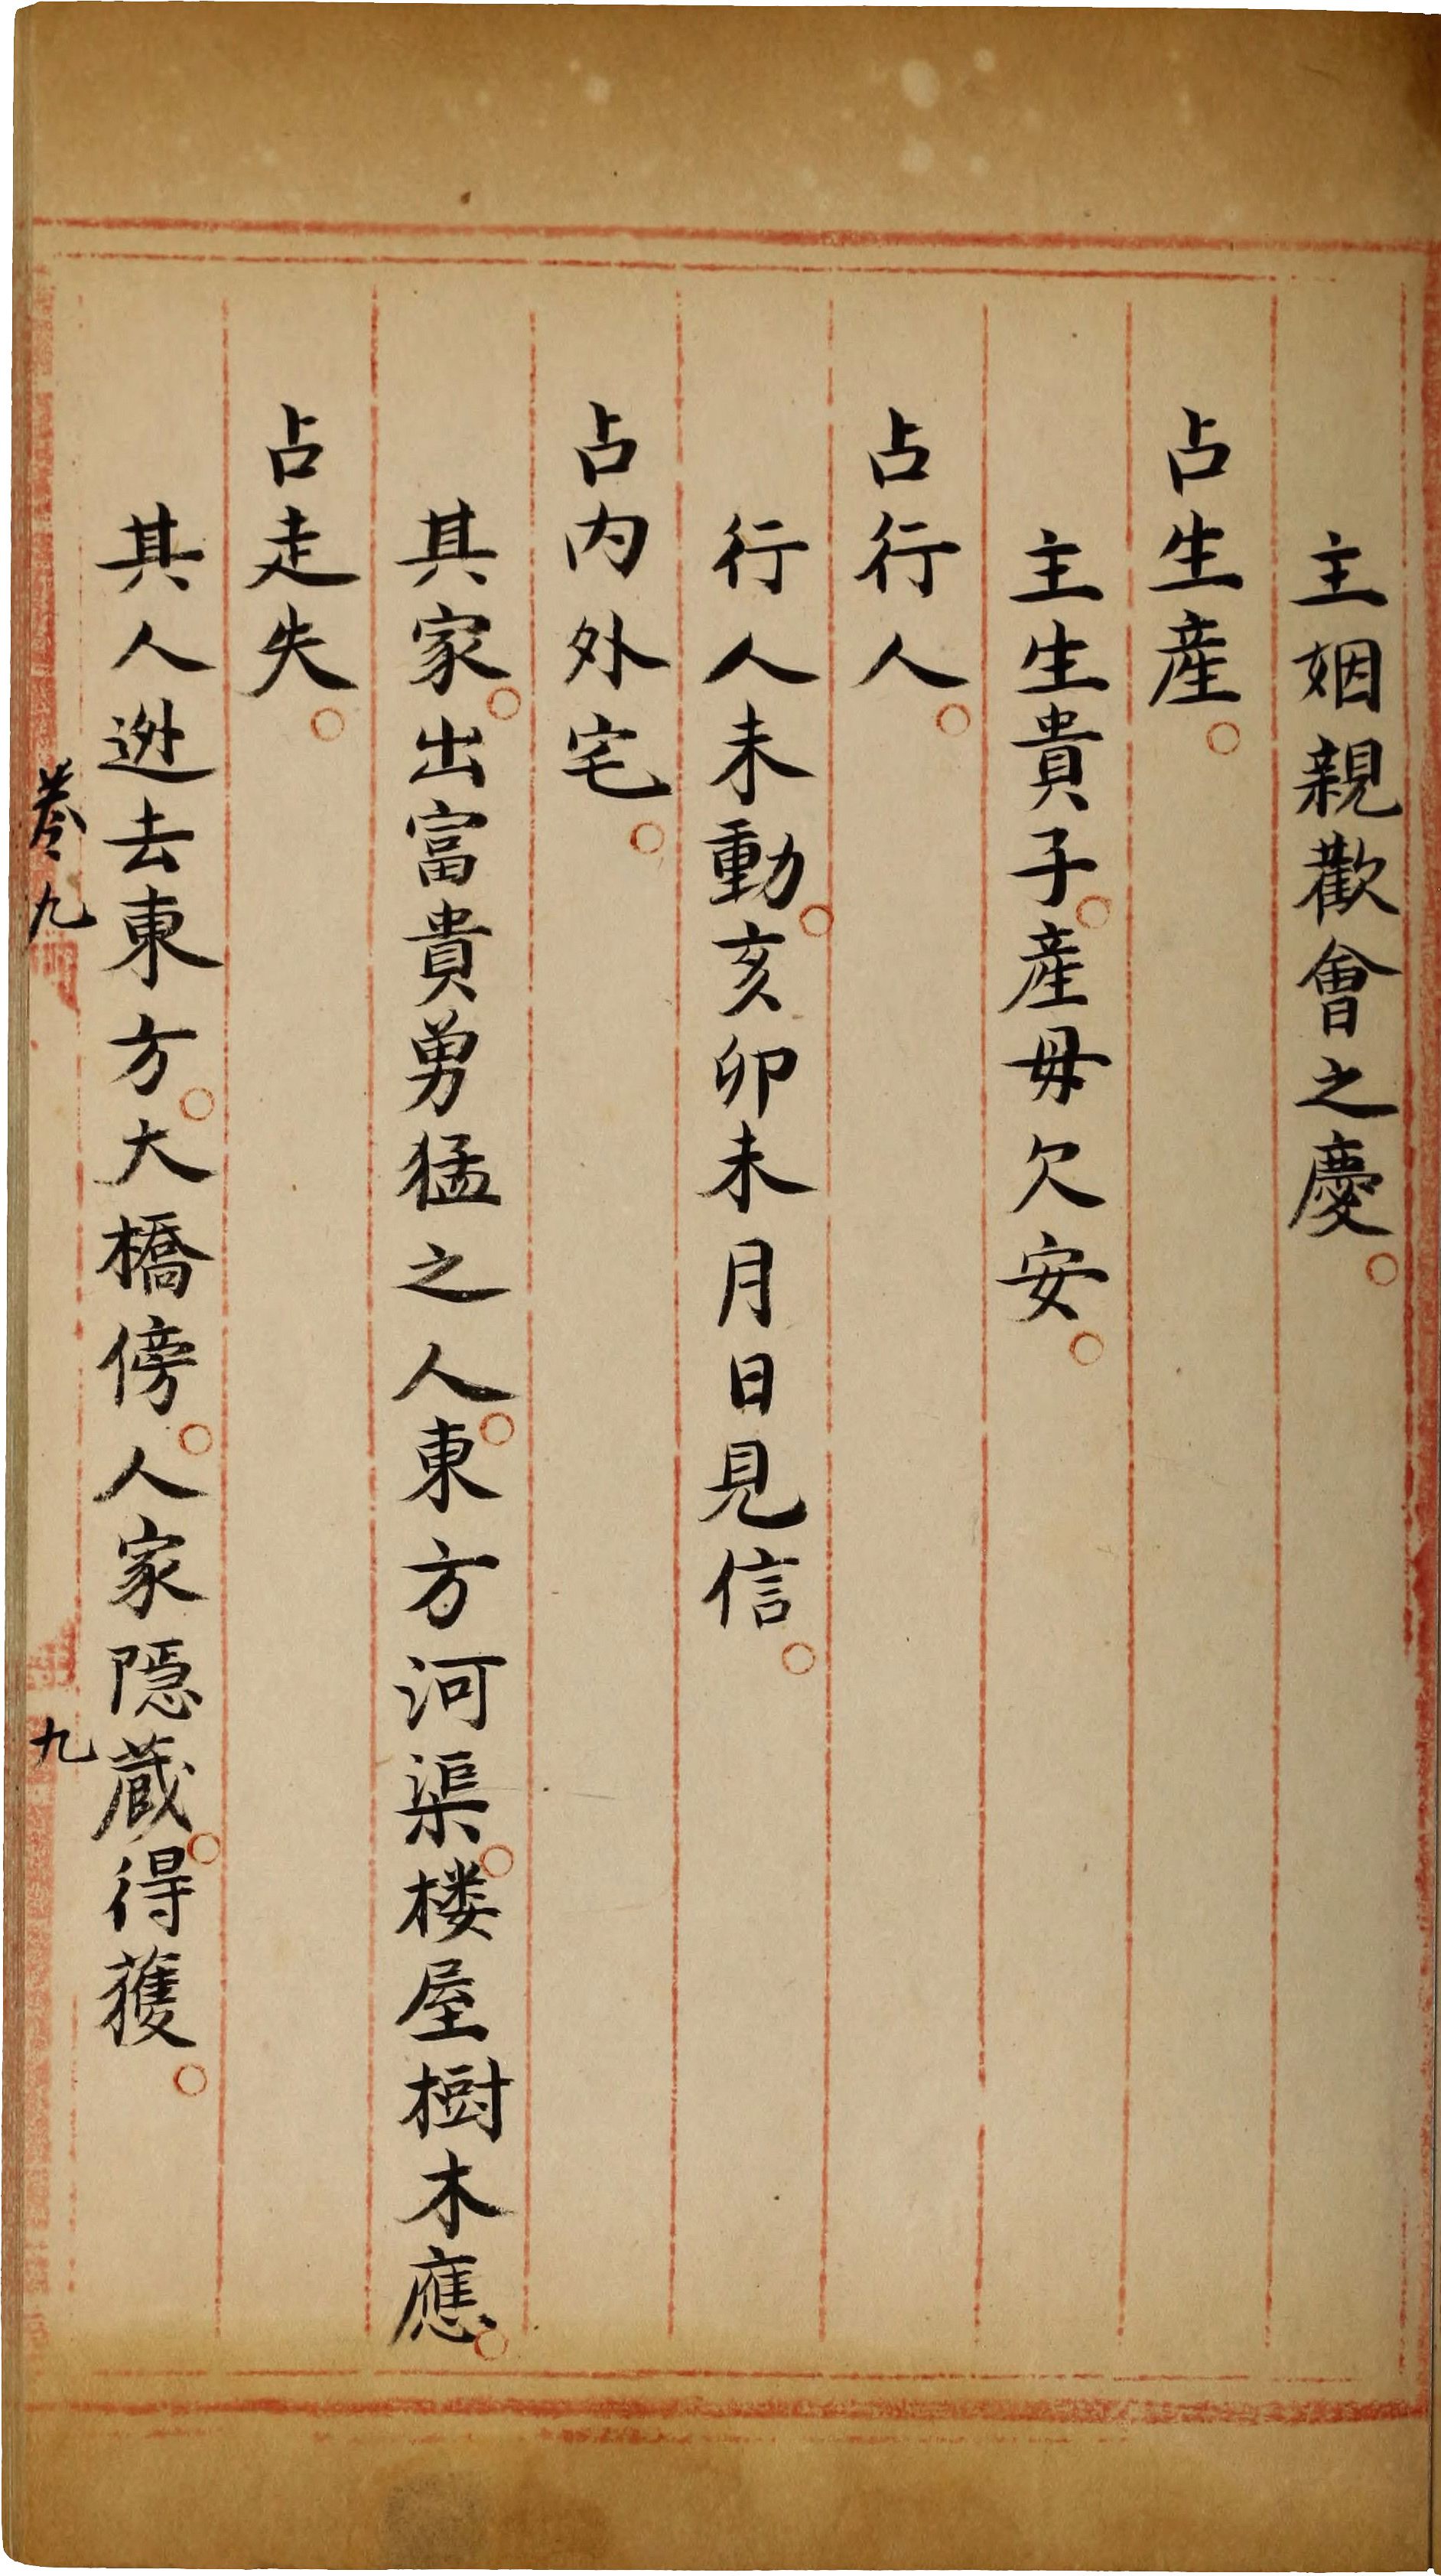 主姻親歡會之慶○
占生産○
主生貴子○産母欠安○
占行人○
行人未動○亥卯未月日見信○
占内外宅○
其家○出富貴勇猛之人○東方河渠○楼屋樹木應○
占走失○
其人迯去東方○大橋傍○人家隠蔵○得獲○
卷九
九